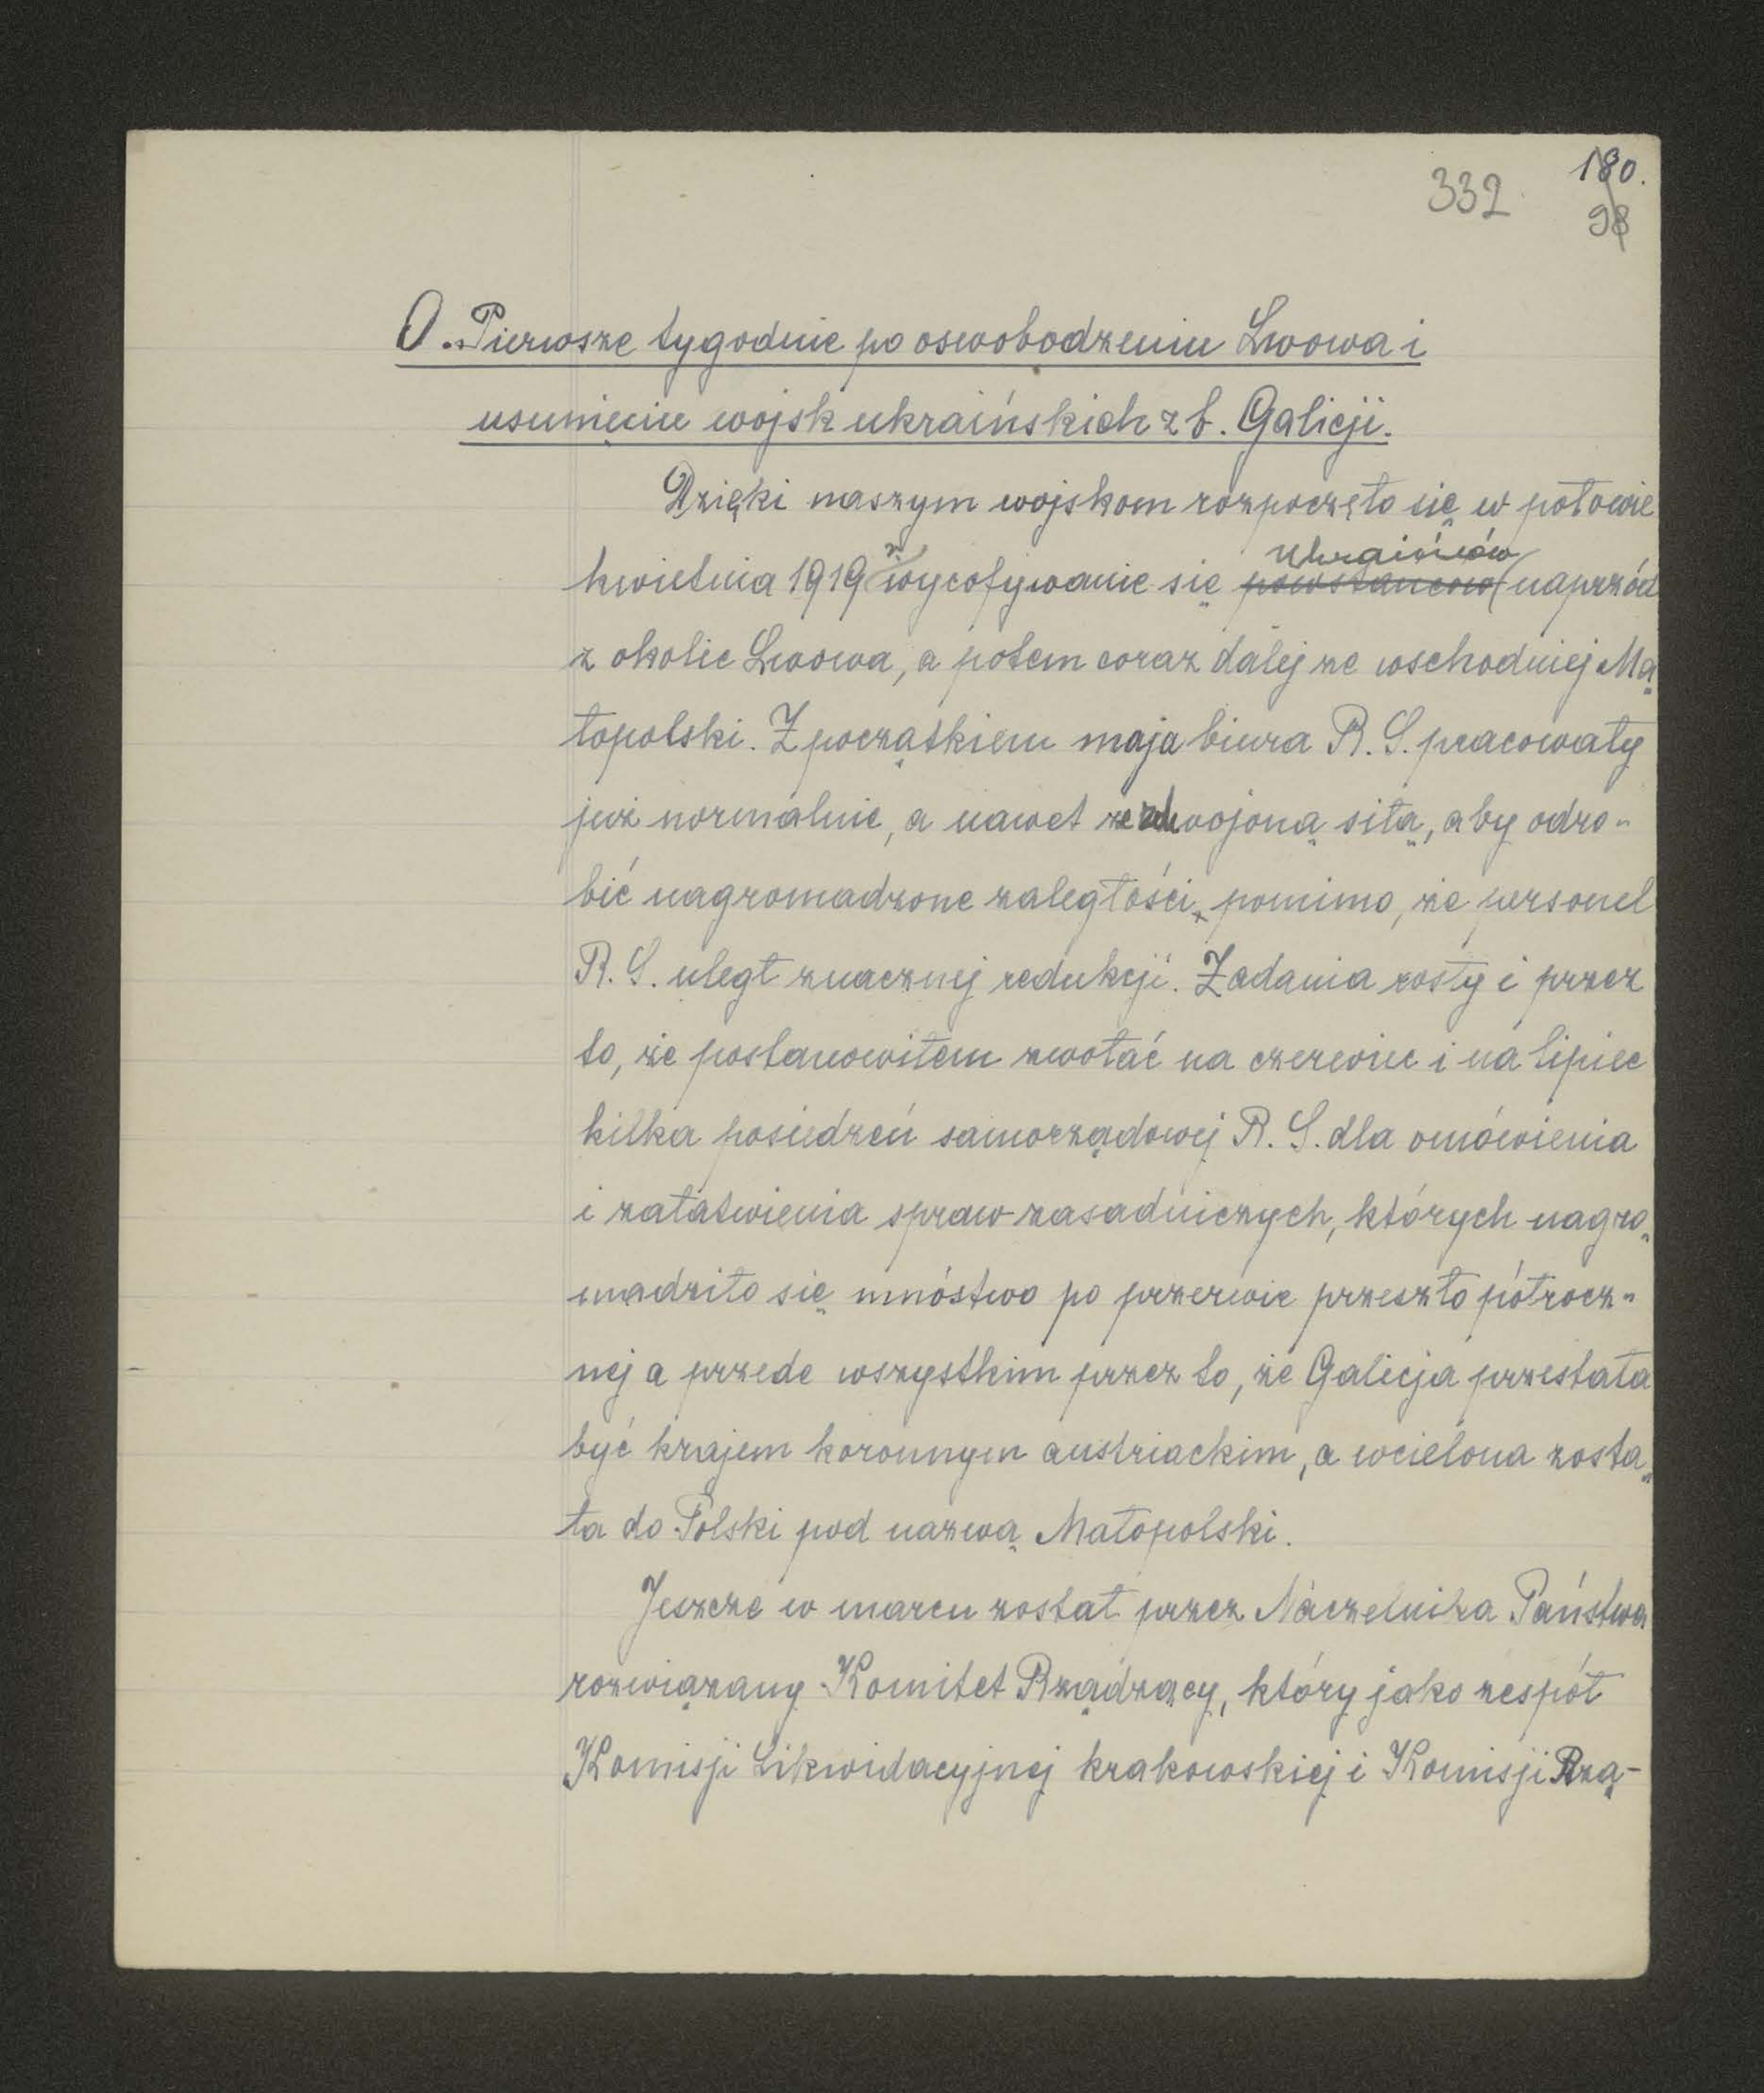 332 180.
98
O. Pierwsze tygodnie po oswobodzeniu Lwowa i
usunięciu wojsk ukraińskich z b. Galicji.
Dzięki naszym wojskom rozpoczęło się w połowie
Ukraińców
kwietnia 1919 r wycofywanie się powstańców naprzód
z okolic Lwowa, a potem coraz dalej ze wschodniej Ma„
łopolski. Z początkiem maja biura R. S. pracowały
już normalnie, a nawet ze zdwojoną siłą, aby odro„
bić nagromadzone zaległości, pomimo, że personel
R. S. uległ znacznej redukcji. Zadania rosły i przez
to, że postanowiłem zwołać na czerwiec i na lipiec
kilka posiedzeń samorządowej R. S. dla omówienia
i załatwienia spraw zasadniczych, których nagro„
madziło się mnóstwo po przerwie przeszło półrocz„
nej a przede wszystkim przez to, że Galicja przestała
być krajem koronnym austriackim, a wcielona zosta„
ła do Polski pod nazwą Małopolski.
Jeszcze w marcu został przez Naczelnika Państwa
rozwiązany Komitet Rządzący, który jako zespół
Komisji Likwidacyjnej krakowskiej i Komisji Rzą-